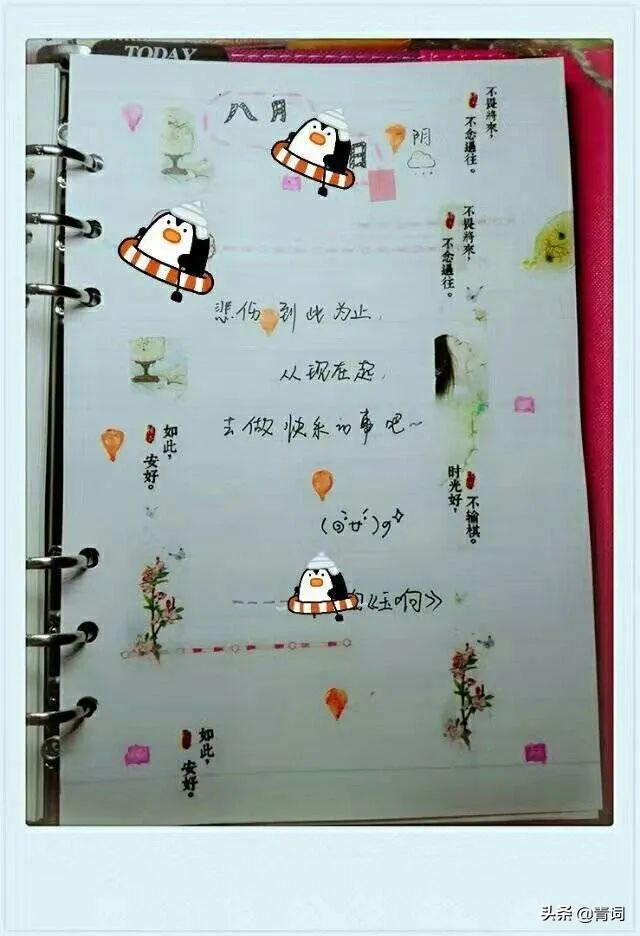 TODAY
八月
日
阴
不畏將來，
不念過往。
不畏將來，
不念過往。
悲伤到此为止，
从现在起，
去做快乐的事吧~
如此，
安好。
时光好，
不输棋。
如此，
安好。
头条 @青词